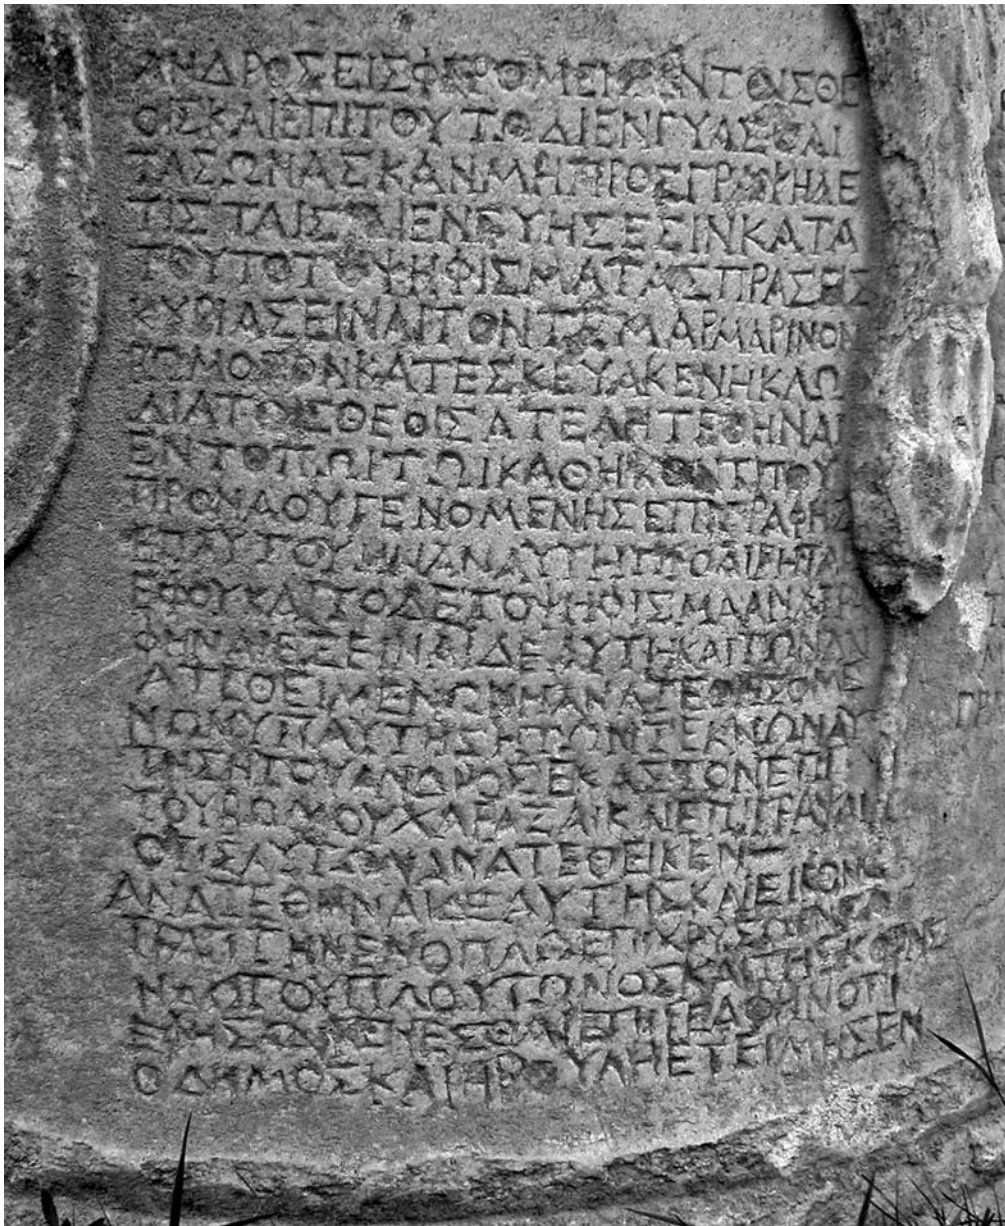 ΑΝΔΡΟΣΕΙΣΦΕΡΟΜΕΝ ΕΝΤΟΙΣΘΕ
ΟΙΣΚΑΙΕΠΙΤΟΥΤΩΔΙΕΝΓΥΑΣΘΑΙ
ΤΑΣΩΝΑΣΚΑΝΜΗΠΡΟΣΓΡΑΦΗΔΕ
ΤΙΣΤΑΙΣΔΙΕΝΓΥΗΣΕΣΙΝΚΑΤΑ
ΤΟΥΤΟΤΟΨΗΦΙΣΜΑΤΑΣΠΡΑΣΕΙΣ
ΚΥΡΙΑΣΕΙΝΑΙΤΟΝΤΕΜΑΡΜΑΡΙΝΟΝ
ΒΩΜΟΝΟΝΚΑΤΕΣΚΕΥΑΚΕΝΗΚΛΩ
ΔΙΑΤΟΙΣΘΕΟΙΣΑΤΕΛΗΤΕΘΗΝΑΙ
ΕΝΤΟΠΩΙΤΩΙΚΑΘΗΚΟΝΤΙΠΟΥ
ΠΡΟΝΑΟΥΓΕΝΟΜΕΝΗΣΕΠΙΓΡΑΦΗΣ
ΕΠΑΥΤΟΥΗΝΑΝΑΥΤΗΠΡΟΑΙΡΗΤΑΙ
ΕΦΟΥΚΑΙΤΟΔΕΤΟΨΗΦΙΣΜΑΑΝΑΤΕ
ΘΗΝΑΙΕΞΕΙΝΑΙΔΕΑΥΤΗΚΑΙΤΩΝΑΝ
ΑΤΕΘΕΙΜΕΝΩΝΗΑΝΑΤΕΘΗΣΟΜΕ
ΝΩΝΥΠΑΥΤΗΣΗΤΩΝΤΕΚΝΩΝΑΥ
ΤΗΣΗΤΟΥΑΝΔΡΟΣΕΚΑΣΤΟΝΕΠΙ
ΤΟΥΒΩΜΟΥΧΑΡΑΞΑΙΚΑΙΕΠΙΓΡΑΨΑΙ
ΟΤΙΣΑΥΤΩΝΑΝΑΤΕΘΕΙΚΕΝ
ΑΝΑΤΕΘΗΝΑΙΔΕΑΥΤΗΣΚΑΙΕΙΚΟΝΑ
ΓΡΑΠΤΗΝΕΝΟΠΛΩΕΠΙΧΡΥΣΩ
ΝΑΩΙΤΟΥΠΛΟΥΤΩΝΟΣΚΑΙΤΗΣΚΟΡΗΣ
Ο ΔΗΜΟΣΚΑΙΗΒΟΥΛΗΕΤΕΙΜΗΣΕΝ